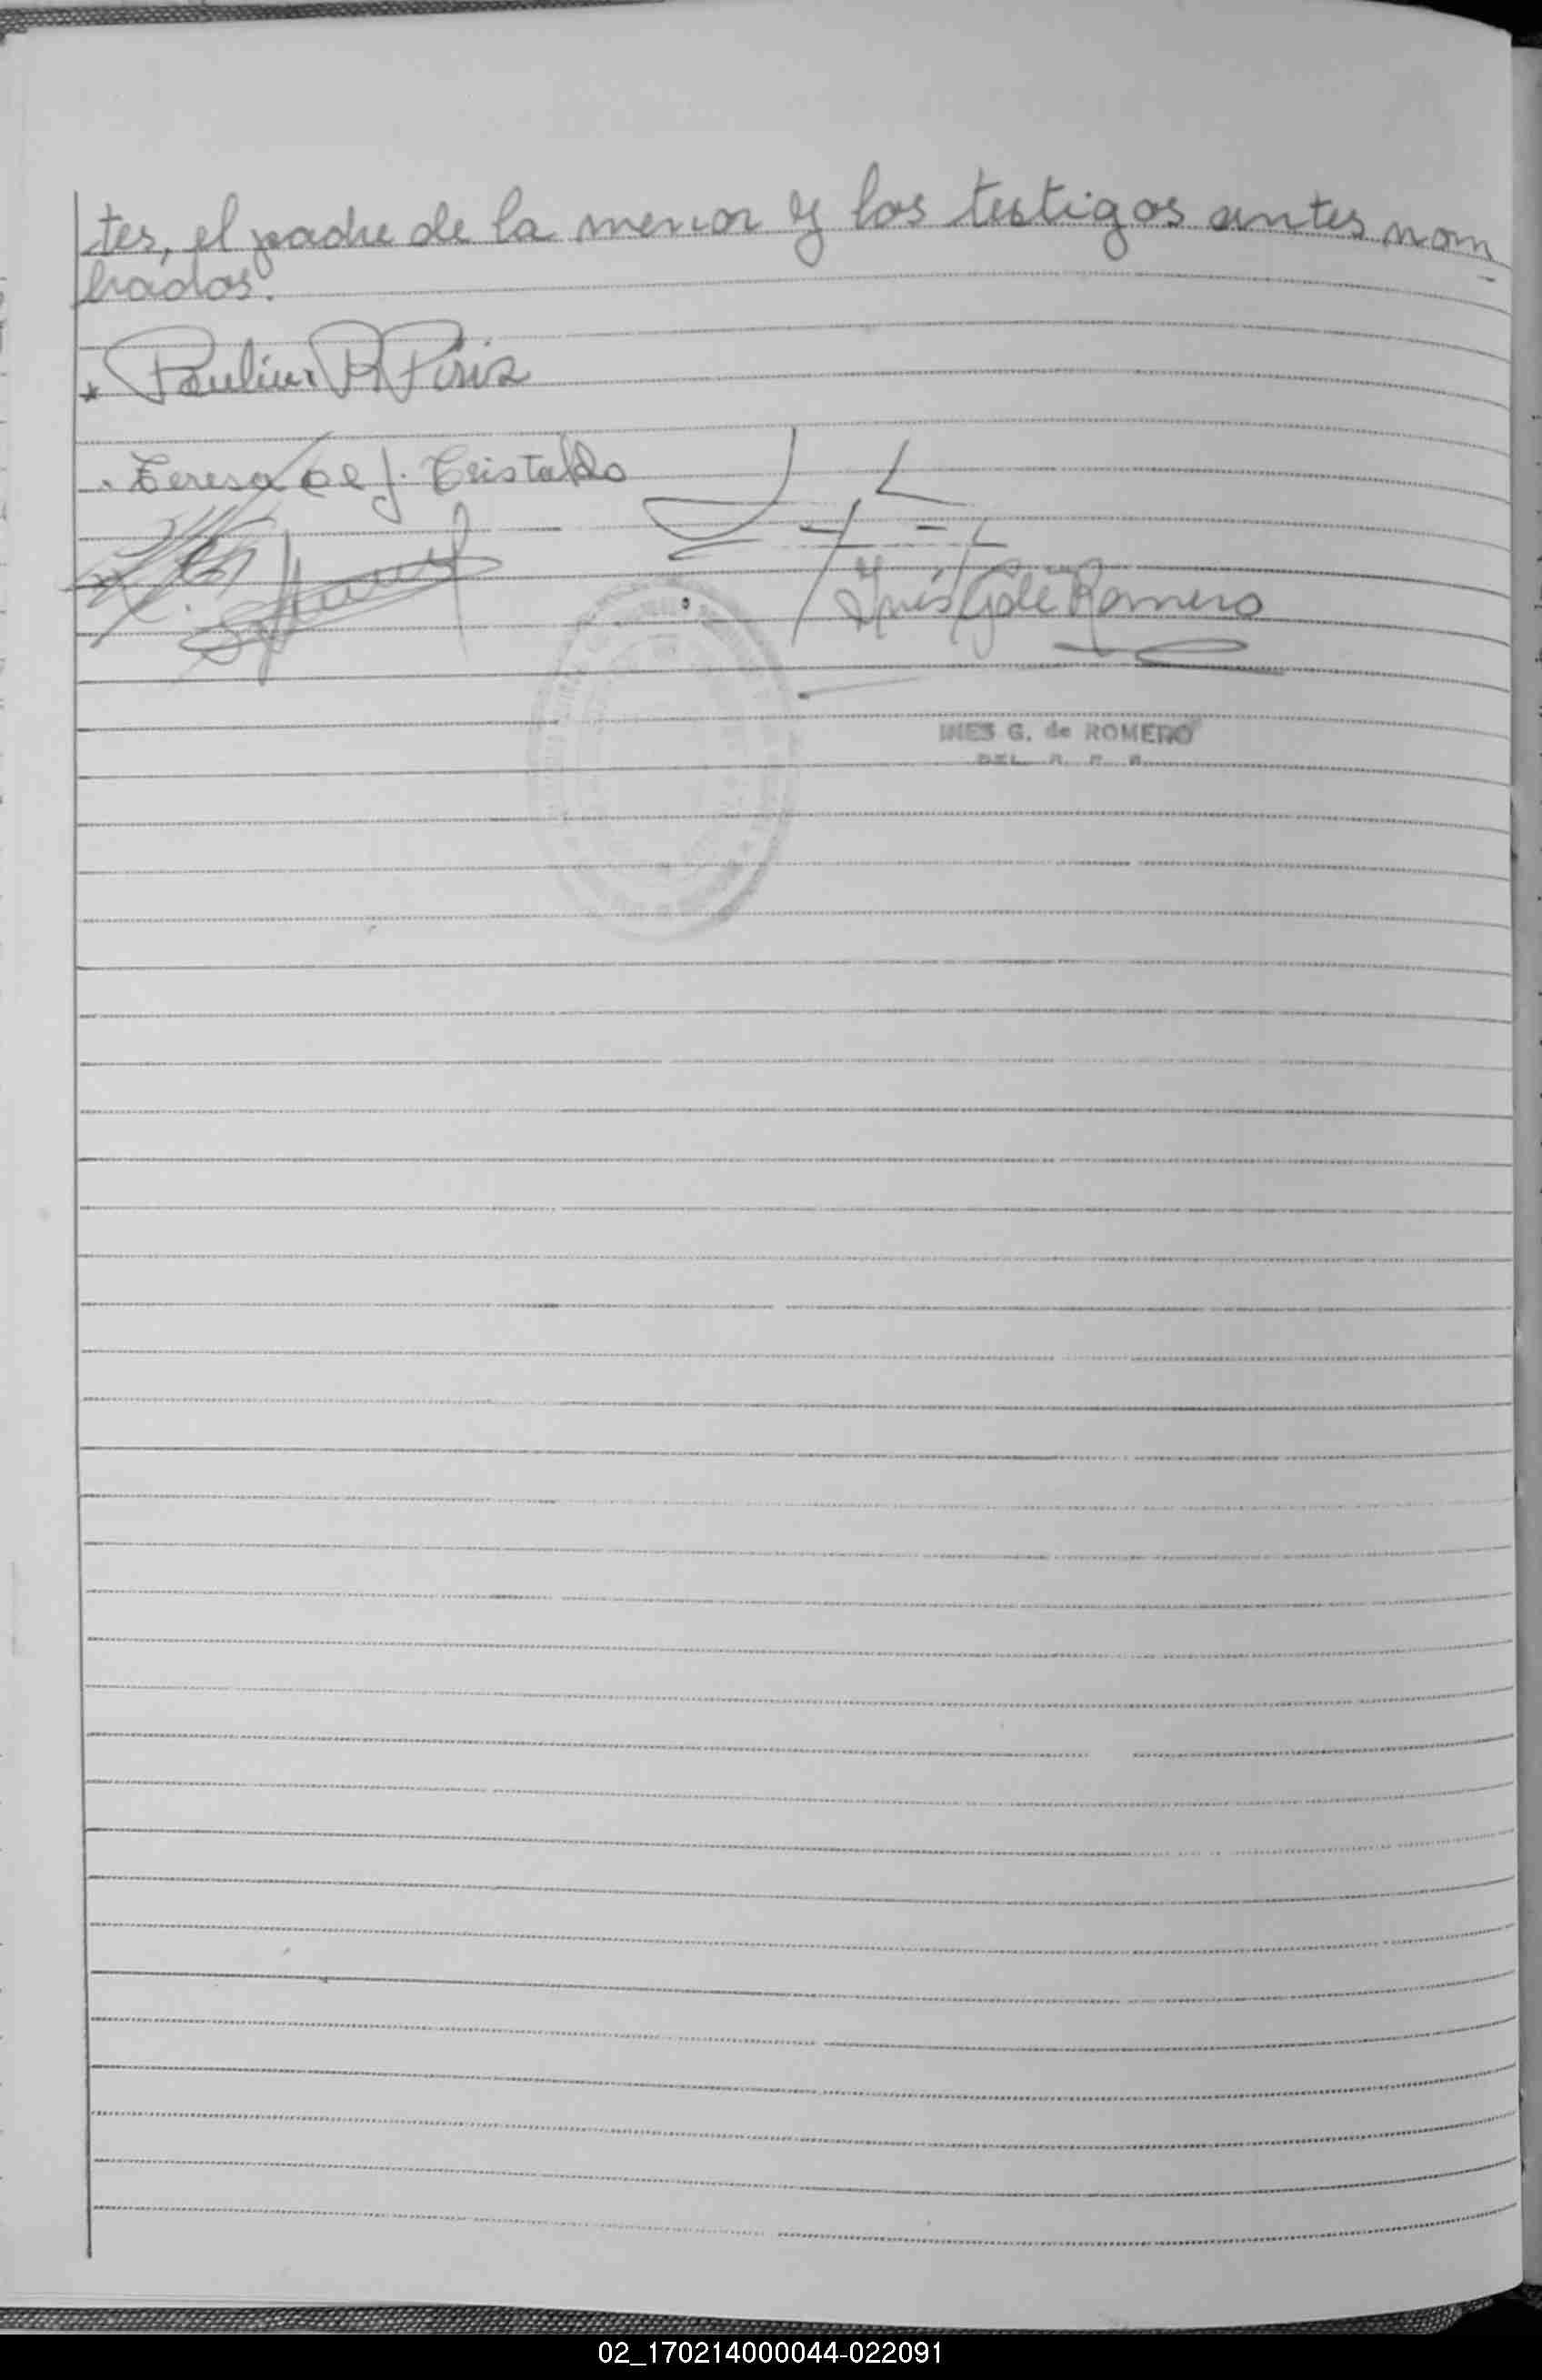 tes, el padre de la menor y los testigos antes nom
brados.
Paulino R Piris
Teresa de J. Cristaldo
Inés G de Romero
INES G. de ROMERO
DEL. R. P. R.
02_170214000044-022091